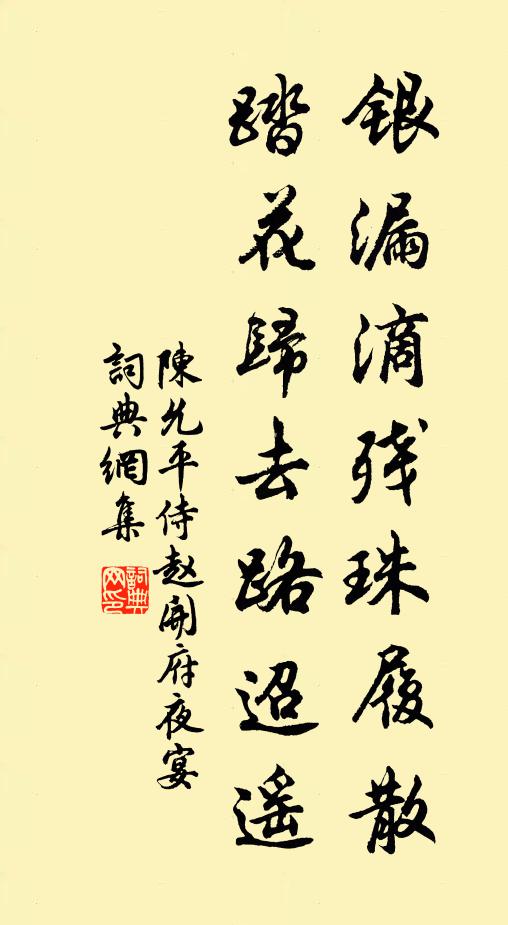 銀漏滴残珠履散
踏花歸去路迢遥
陳允平侍赵開府夜宴
詞典網集
詞典网印